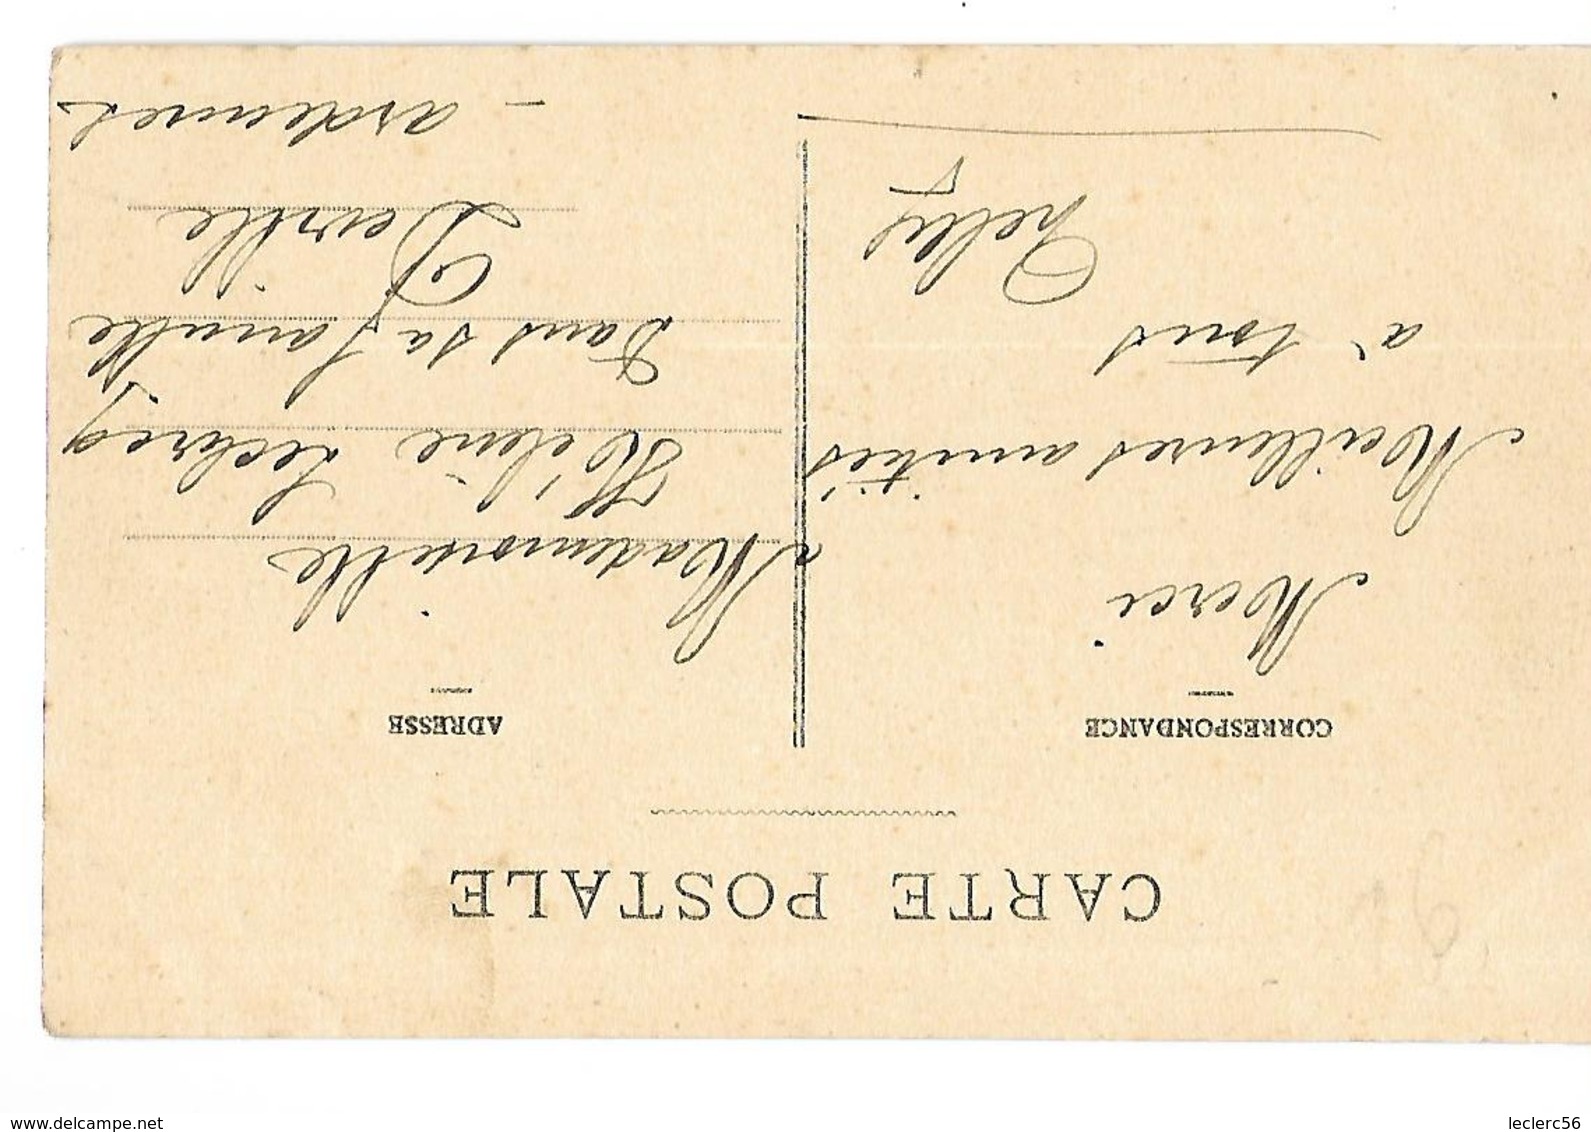 CARTE POSTALE
CORRESPONDANCE
Merci
Meilleures amitiés
à tous
ADRESSE
Mademoiselle
Hélène
Dans sa famille
Deville
- ardennes
www.delcampe.net
leclerc56